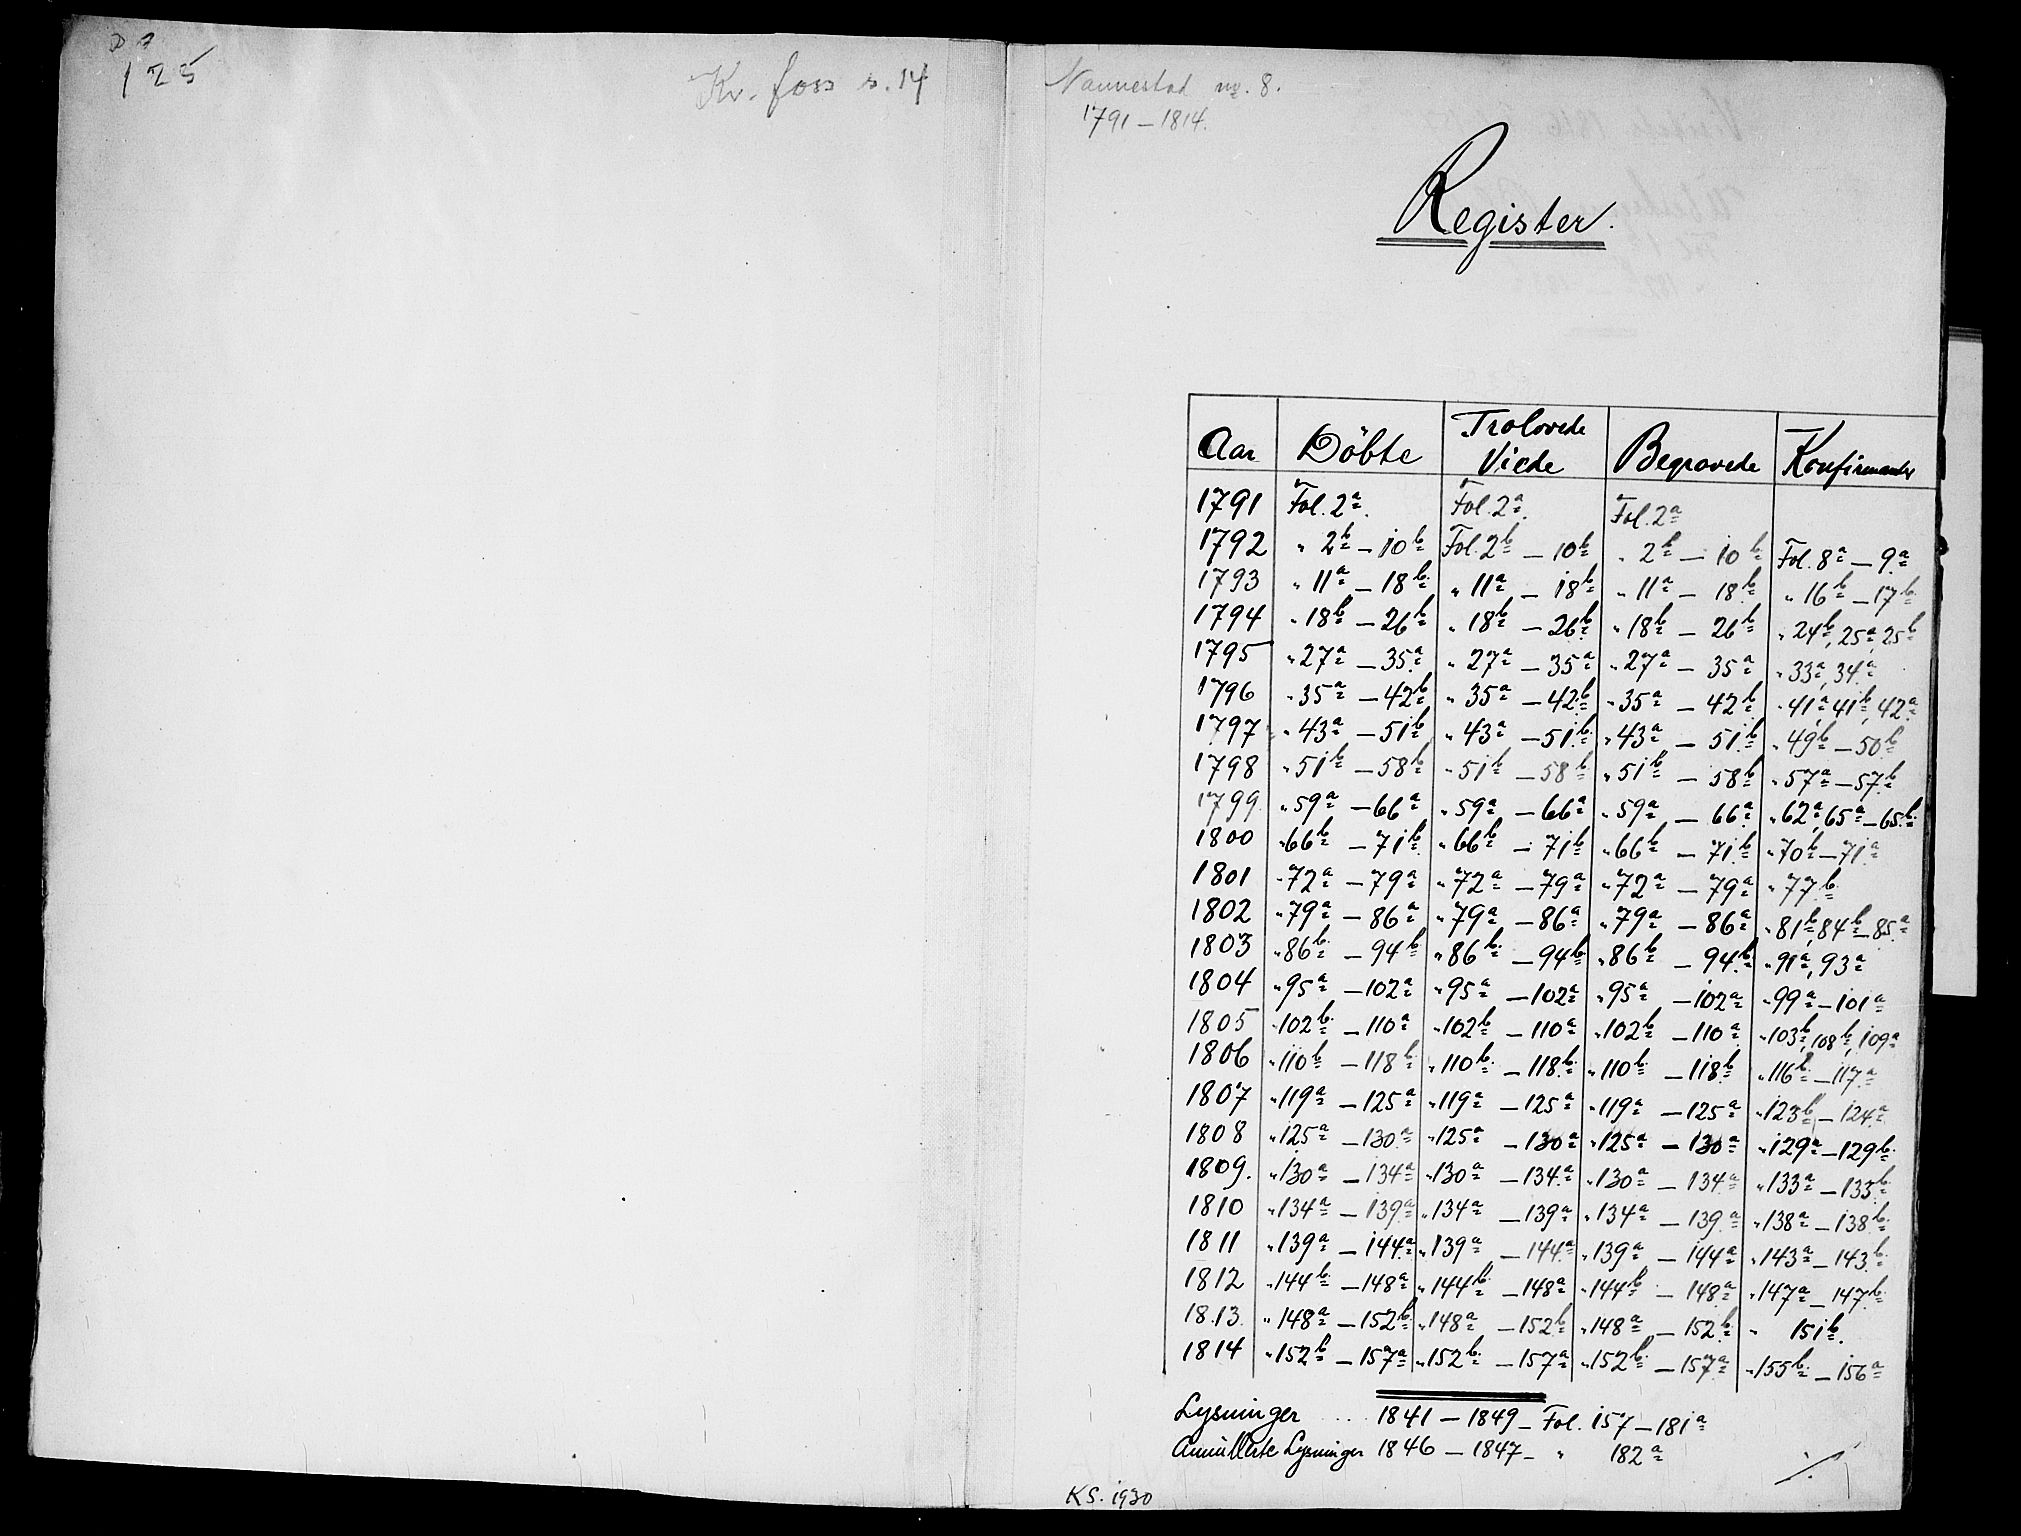 125
Kv. foss s. 14
Nannestad nr. 8.
1791 – 1814.
Register.
Aar | Döbte | Trolovede Viede | Begravede | Konfirmander
1791 | Fol. 2a. | Fol. 2a. | Fol. 2a |
1792 | " 2b – 10b | Fol. 2b – 10b | " 2b – 10b | Fol. 8a – 9a
1793 | " 11a – 18b | " 11a – 18b | " 11a – 18b | " 16b – 17b
1794 | " 18b – 26b | " 18b – 26b | " 18b – 26b | " 24b, 25a, 25b
1795 | " 27a – 35a | " 27a – 35a | " 27a – 35a | " 33a, 34a
1796 | " 35a – 42b | " 35a – 42b | " 35a – 42b | " 41a, 41b, 42a
1797 | " 43a – 51b | " 43a – 51b | " 43a – 51b | " 49b – 50b
1798 | " 51b – 58b | " 51b – 58b | " 51b – 58b | " 57a – 57b
1799 | " 59a – 66a | " 59a – 66a | " 59a – 66a | " 62a, 65a – 65b
1800 | " 66b – 71b | " 66b – 71b | " 66b – 71b | " 70b – 71a
1801 | " 72a – 79a | " 72a – 79a | " 72a – 79a | " 77b
1802 | " 79a – 86a | " 79a – 86a | " 79a – 86a | " 81b, 84b – 85a
1803 | " 86b – 94b | " 86b – 94b | " 86b – 94b | " 91a, 93a
1804 | " 95a – 102a | " 95a – 102a | " 95a – 102a | " 99a – 101a
1805 | " 102b – 110a | " 102b – 110a | " 102b – 110a | " 103b, 108b, 109a
1806 | " 110b – 118b | " 110b – 118b | " 110b – 118b | " 116b – 117a
1807 | " 119a – 125a | " 119a – 125a | " 119a – 125a | " 123b – 124a
1808 | " 125a – 130a | " 125a – 130a | " 125a – 130a | " 129a – 129b
1809. | " 130a – 134a | " 130a – 134a | " 130a – 134a | " 133a – 133b
1810 | " 134a – 139a | " 134a – 139a | " 134a – 139a | " 138a – 138b
1811 | " 139a – 144a | " 139a – 144a | " 139a – 144a | " 143a – 143b
1812 | " 144b – 148a | " 144b – 148a | " 144b – 148a | " 147a – 147b
1813. | " 148a – 152b | " 148a – 152b | " 148a – 152b | " 151b.
1814 | " 152b – 157a | " 152b – 157a | " 152b – 157a | " 155b – 156a
Lysninger .... 1841 – 1849 – Fol. 157 – 181a
Annullerte Lysninger 1846 – 1847 – " 182a
./.
KS. 1930